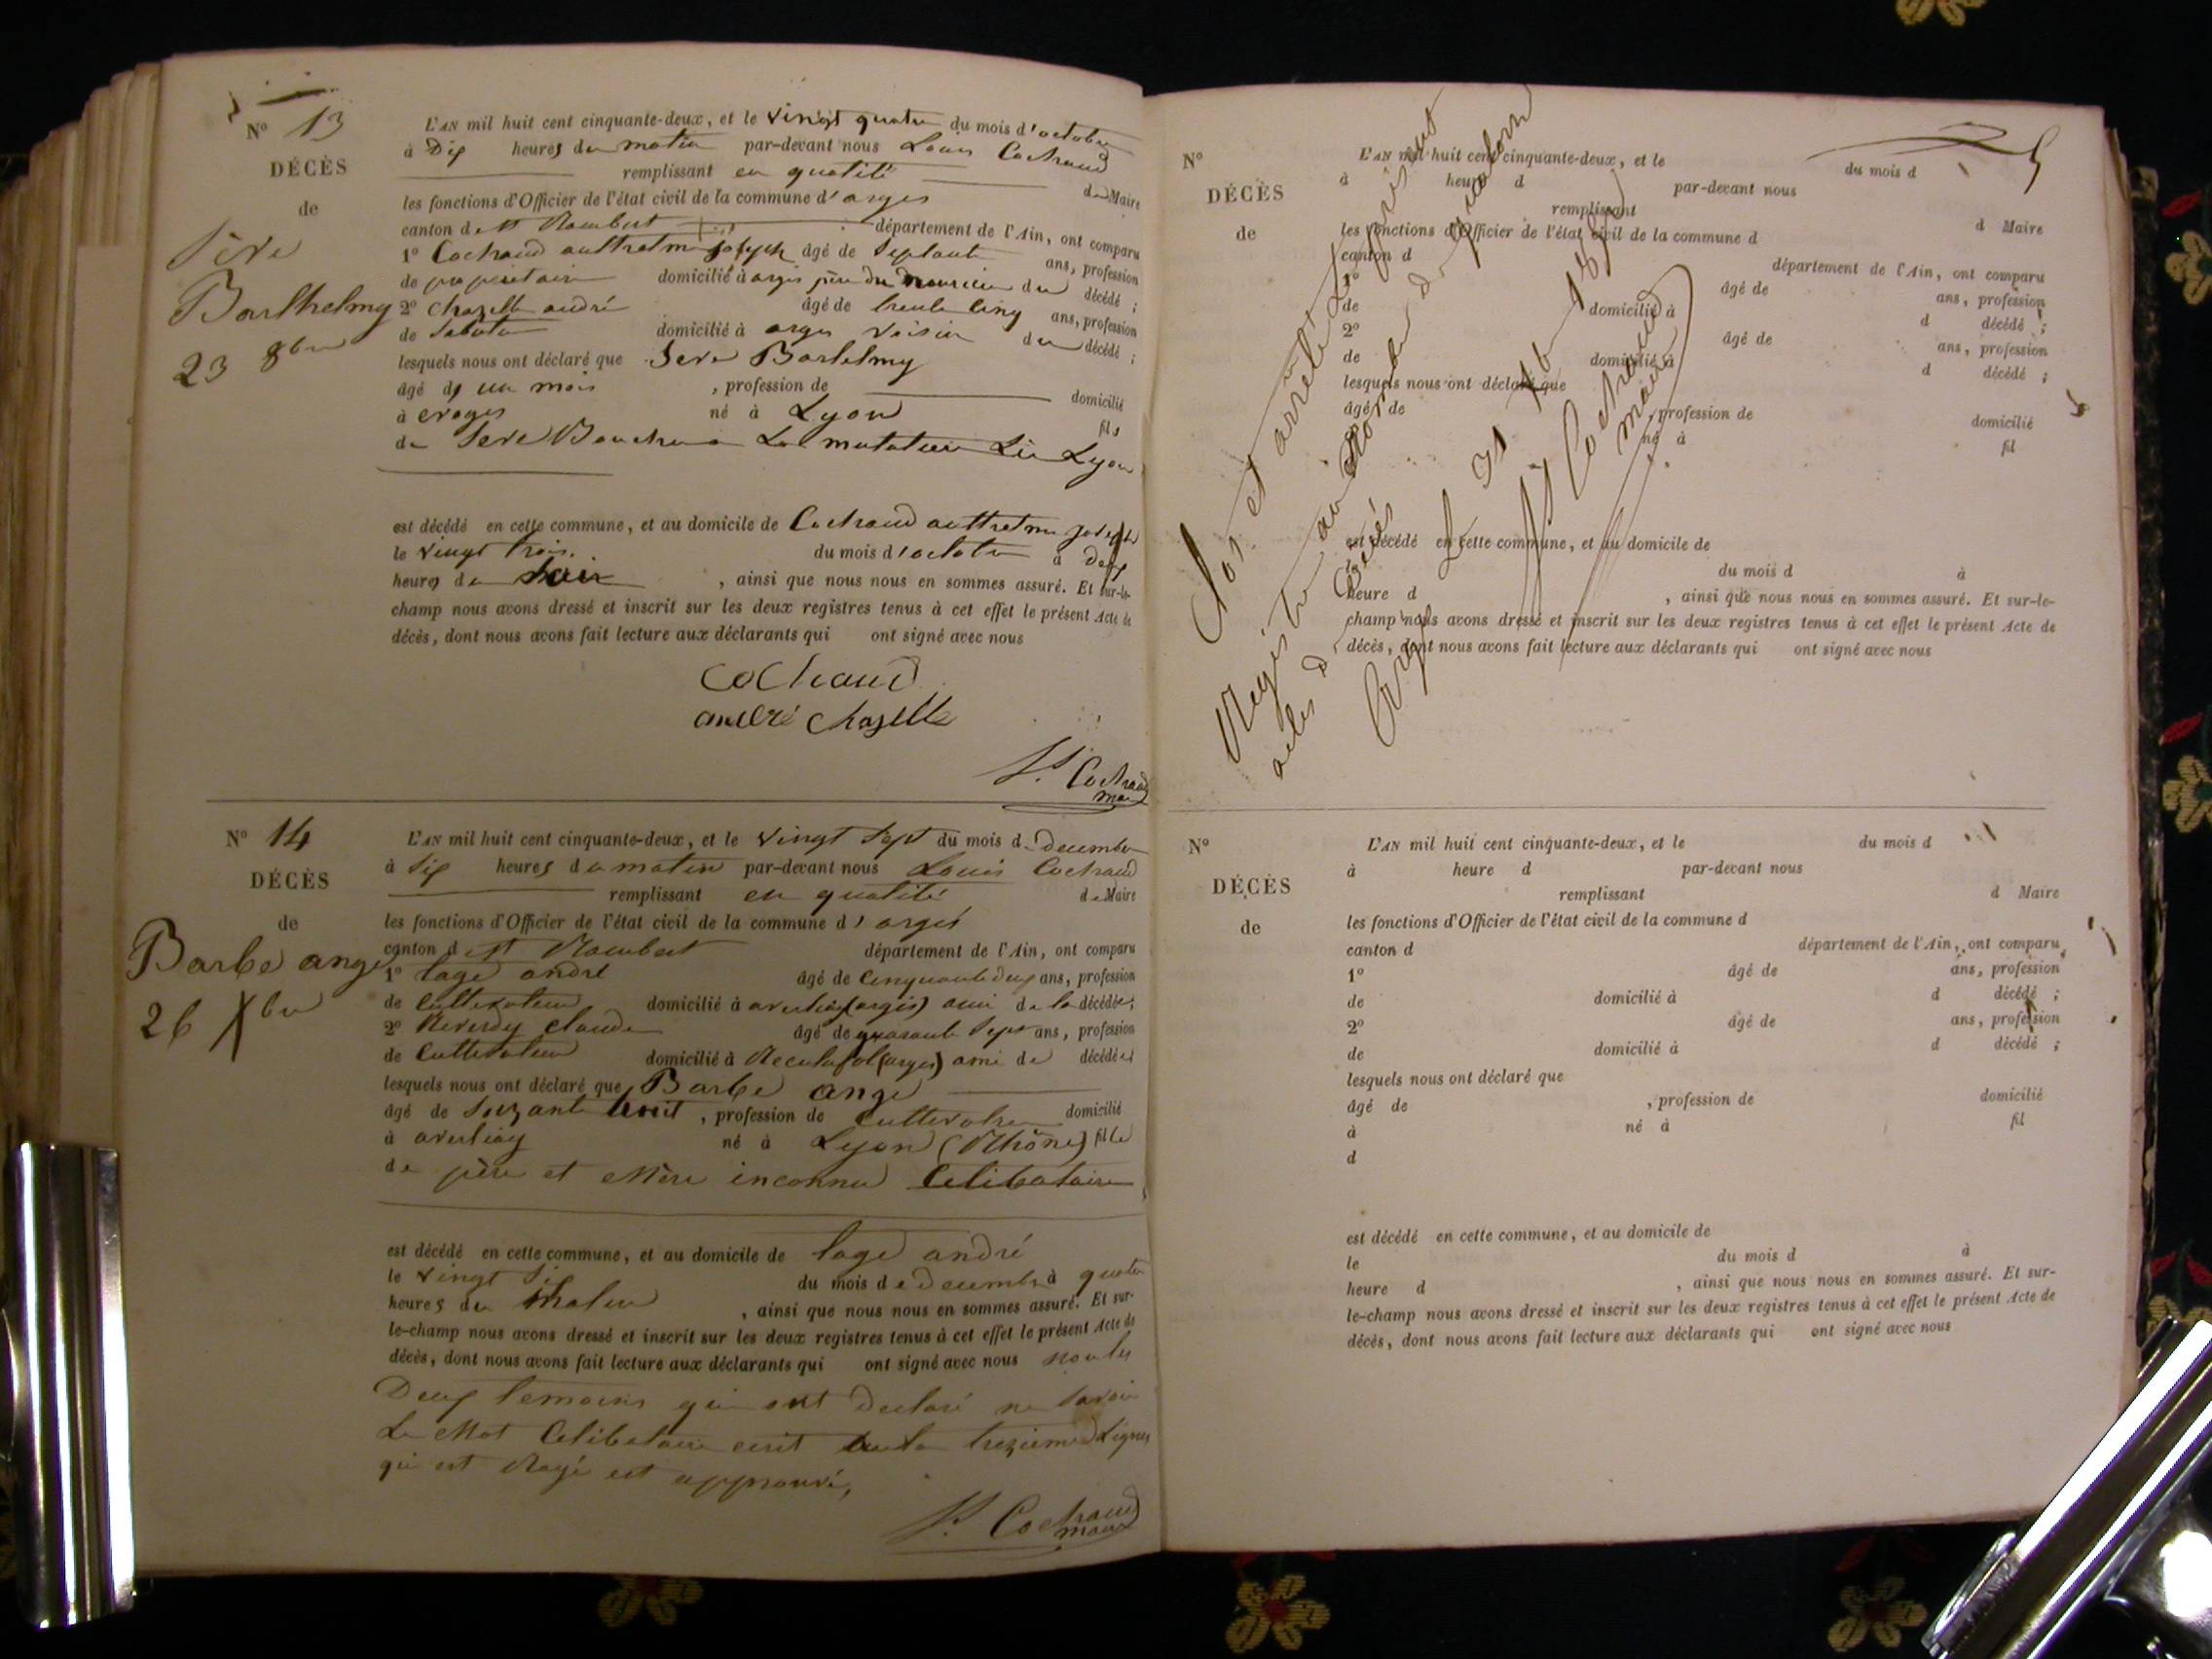 N° 13
DÉCÈS
de
Barthelmy
23 8bre
L'AN mil huit cent cinquante-deux, et le vingt quatre du mois d'octobre
à Dix heures du matin par-devant nous Louis Cochaud
remplissant en qualité de Maire
les fonctions d'Officier de l'état civil de la commune d'arges
canton de st Rambert département de l'Ain, ont comparu
1° Cochaud joseph âgé de Septante ans, profession
de propietaire domicilié à argis père du nouricier du décédé ;
2° Chazelle andré âgé de trente cinq ans, profession
de domicilié à arges voisin du décédé ;
lesquels nous ont déclaré que Sere Bartelmy
âgé d un mois , profession de domicilié
à né à Lyon fils
de Sere Lyon
est décédé en cette commune, et au domicile de Cochaud joseph
le vingt trois du mois d'octobre à deux
heures du Soir , ainsi que nous nous en sommes assuré. Et sur-le-
champ nous avons dressé et inscrit sur les deux registres tenus à cet effet le présent Acte de
décès, dont nous avons fait lecture aux déclarants qui ont signé avec nous
Cochaud
andré chazelle
Ls Cochaud
maire
N° 14
DÉCÈS
de
Barbe ange
26 Xbre
L'AN mil huit cent cinquante-deux, et le vingt Sept du mois de decembre
à Six heures du matin par-devant nous Louis Cochaud
remplissant en qualité de Maire
les fonctions d'Officier de l'état civil de la commune d'arges
canton de st Rambert département de l'Ain, ont comparu
1° tage andré âgé de Cinquante deux ans, profession
de Cultivateur domicilié à (argis) ami de la décédée ;
2° Reverdy claude âgé de quarante Sept ans, profession
de Cultivateur domicilié à Reculafol (arges) ami de décédée ;
lesquels nous ont déclaré que Barbe ange
âgé de Soizante huit , profession de Cultivatrice domicilié
à né à Lyon (Rhône) fille
de père et Mère inconnu Celibataire
est décédé en cette commune, et au domicile de tage andré
le vingt Six du mois de decembre à quatre
heures du Matin , ainsi que nous nous en sommes assuré. Et sur-
le-champ nous avons dressé et inscrit sur les deux registres tenus à cet effet le présent Acte de
décès, dont nous avons fait lecture aux déclarants qui ont signé avec nous non les
Deux temoins qui ont declaré ne Savoir
Le Mot Celibataire ecrit a la treziemes Lignes
qui est Rayé est approuvé,
Ls Cochaud
maire
5
N°
DÉCÈS
de
L'AN mil huit cent cinquante-deux, et le du mois d
à heure d par-devant nous
remplissant d Maire
les fonctions d'Officier de l'état civil de la commune d
canton d département de l'Ain, ont comparu
1° âgé de ans, profession
de domicilié à d décédé ;
2° âgé de ans, profession
de domicilié à d décédé ;
lesquels nous ont déclaré que
âgé de , profession de domicilié
à né à fil
d
est décédé en cette commune, et au domicile de
le du mois d à
heure d , ainsi que nous nous en sommes assuré. Et sur-le-
champ nous avons dressé et inscrit sur les deux registres tenus à cet effet le présent Acte de
décès, dont nous avons fait lecture aux déclarants qui ont signé avec nous
Clos et arreté le présent
Registre au Nombre de quatorze
actes de Décès
Arges Le 31 Xbre 1852
Ls Cochaud
maire
N°
DÉCÈS
de
L'AN mil huit cent cinquante-deux, et le du mois d
à heure d par-devant nous
remplissant d Maire
les fonctions d'Officier de l'état civil de la commune d
canton d département de l'Ain, ont comparu
1° âgé de ans, profession
de domicilié à d décédé ;
2° âgé de ans, profession
de domicilié à d décédé ;
lesquels nous ont déclaré que
âgé de , profession de domicilié
à né à fil
d
est décédé en cette commune, et au domicile de
le du mois d à
heure d , ainsi que nous nous en sommes assuré. Et sur-
le-champ nous avons dressé et inscrit sur les deux registres tenus à cet effet le présent Acte de
décès, dont nous avons fait lecture aux déclarants qui ont signé avec nous